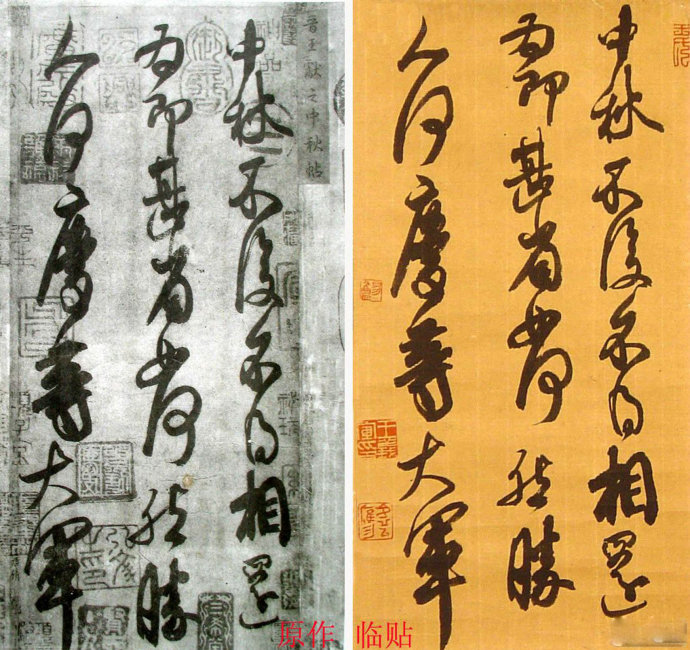 晋王献之中秋帖
中秋不復不得相還
為即甚省如何然勝
人何慶等大軍
原作
中秋不復不得相還
為即甚省如何然勝
人何慶等大軍
临贴